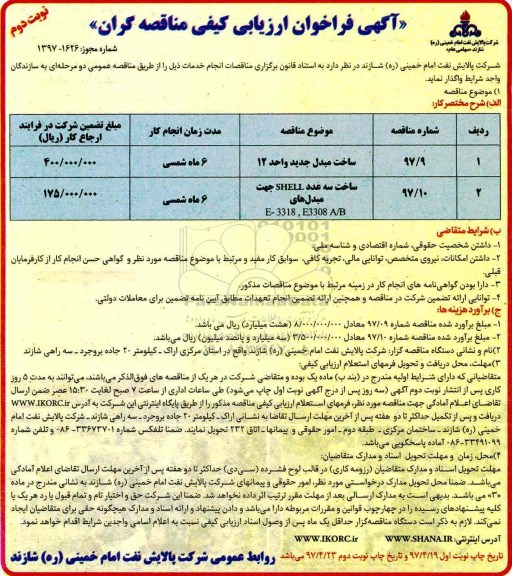 نوبت دوم
«آگهی فراخوان ارزیابی کیفی مناقصه گران»
شرکت پالایش نفت امام خمینی (ره)
شازند (سهامی عام)
شماره مجوز: ۱۶۲۶-۱۳۹۷
شرکت پالایش نفت امام خمینی (ره) شازند در نظر دارد به استناد قانون برگزاری مناقصات انجام خدمات ذیل را از طریق مناقصه عمومی دو مرحله‌ای به سازندگان
واجد شرایط واگذار نماید.
۱) موضوع مناقصه
الف) شرح مختصر کار:
ردیف شماره مناقصه موضوع مناقصه مدت زمان انجام کار مبلغ تضمین شرکت در فرایند ارجاع کار (ریال)
۱ ۹۷/۹ ساخت مبدل جدید واحد ۱۲ ۶ ماه شمسی ۴۰۰/۰۰۰/۰۰۰
۲ ۹۷/۱۰ ساخت سه عدد SHELL جهت مبدل‌های E- 3318 , E3308 A/B ۶ ماه شمسی ۱۷۵/۰۰۰/۰۰۰
ب) شرایط متقاضی
۱- داشتن شخصیت حقوقی، شماره اقتصادی و شناسه ملی.
۲- داشتن امکانات، نیروی متخصص، توانایی مالی، تجربه کافی، سوابق کار مفید و مرتبط با موضوع مناقصه مورد نظر و گواهی حسن انجام کار از کارفرمایان
قبلی.
۳- دارا بودن گواهی‌نامه های انجام کار در زمینه مرتبط با موضوع مناقصات مذکور.
۴- توانایی ارائه تضمین شرکت در مناقصه و همچنین ارائه تضمین انجام تعهدات مطابق آیین نامه تضمین برای معاملات دولتی.
ج) برآورد هزینه ها:
۱- مبلغ برآورد شده مناقصه شماره ۹۷/۰۹ معادل ۸/۰۰۰/۰۰۰/۰۰۰ (هشت میلیارد) ریال می باشد.
۲- مبلغ برآورد شده مناقصه شماره ۹۷/۱۰ معادل ۳/۵۰۰/۰۰۰/۰۰۰ (سه میلیارد و پانصد میلیون) ریال می‌باشد.
۲) نام و نشانی دستگاه مناقصه گزار: شرکت پالایش نفت امام خمینی (ره) شازند واقع در استان مرکزی اراک - کیلومتر ۲۰ جاده بروجرد - سه راهی شازند
۳) مهلت، محل دریافت و تحویل فرمهای استعلام ارزیابی کیفی:
متقاضیانی که دارای شرایط اولیه مندرج در (بند ب) ماده یک بوده و متقاضی شرکت در هر یک از مناقصه های فوق‌الذکر می‌باشند، می‌توانند به مدت ۵ روز
کاری پس از انتشار نوبت دوم آگهی (سه روز پس از درج آگهی نوبت اول چاپ می‌شود) طی ساعات اداری از ساعت ۷ صبح لغایت ۱۵:۳۰ عصر ضمن ارسال
تقاضای اعلام آمادگی جهت مناقصه مورد نظر، فرمهای استعلام ارزیابی کیفی مناقصه مذکور را از طریق پایگاه اینترنتی این شرکت به آدرس WWW.IKORC.IR
دریافت و پس از تکمیل حداکثر تا دو هفته پس از آخرین مهلت ارسال تقاضا به نشانی اراک - کیلومتر ۲۰ جاده بروجرد - سه راهی شازند - شرکت پالایش نفت امام
خمینی (ره) شازند - ساختمان مرکزی - طبقه دوم - امور حقوقی و پیمانها - اتاق ۲۳۲ تحویل نمایند. ضمنا تلفکس شماره ۳۳۶۷۳۷۰۱-۰۸۶ و تلفن شماره
۳۳۴۹۱۰۹۹-۰۸۶ آماده پاسخگویی می‌باشد.
۴) محل، زمان و مهلت تحویل اسناد و مدارک متقاضیان:
مهلت تحویل اسناد و مدارک متقاضیان (رزومه کاری) در قالب لوح فشرده (سی‌دی) حداکثر تا دو هفته پس از آخرین مهلت ارسال تقاضای اعلام آمادگی
می‌باشد. ضمنا محل تحویل مدارک درخواستی مورد نظر، امور حقوقی و پیمانهای شرکت پالایش نفت امام خمینی (ره) شازند به نشانی مندرج در ماده
«۳» می باشد. بدیهی است به مدارک ارسالی بعد از مهلت مقرر ترتیب اثر داده نخواهد شد. ضمنا این شرکت حق و اختیار تام و تمام قبول یا رد هر یک یا
کلیه پیشنهادهای رسیده را در چهارچوب قوانین و مقررات مربوطه دارا می‌باشد و دادن پیشنهاد و ارائه اسناد و مدارک هیچگونه حقی برای متقاضیان ایجاد
نمی‌کند. لازم به ذکر است دستگاه مناقصه‌گزار حداقل یک ماه پس از وصول اسناد ارزیابی کیفی نسبت به اعلام اسامی واجدین شرایط اقدام خواهد نمود.
آدرس اینترنتی: WWW.SHANA.IR و WWW.IKORC.IR
تاریخ چاپ نوبت اول ۹۷/۴/۱۹ و تاریخ چاپ نوبت دوم ۹۷/۴/۲۳ می‌باشد
روابط عمومی شرکت پالایش نفت امام خمینی (ره) شازند